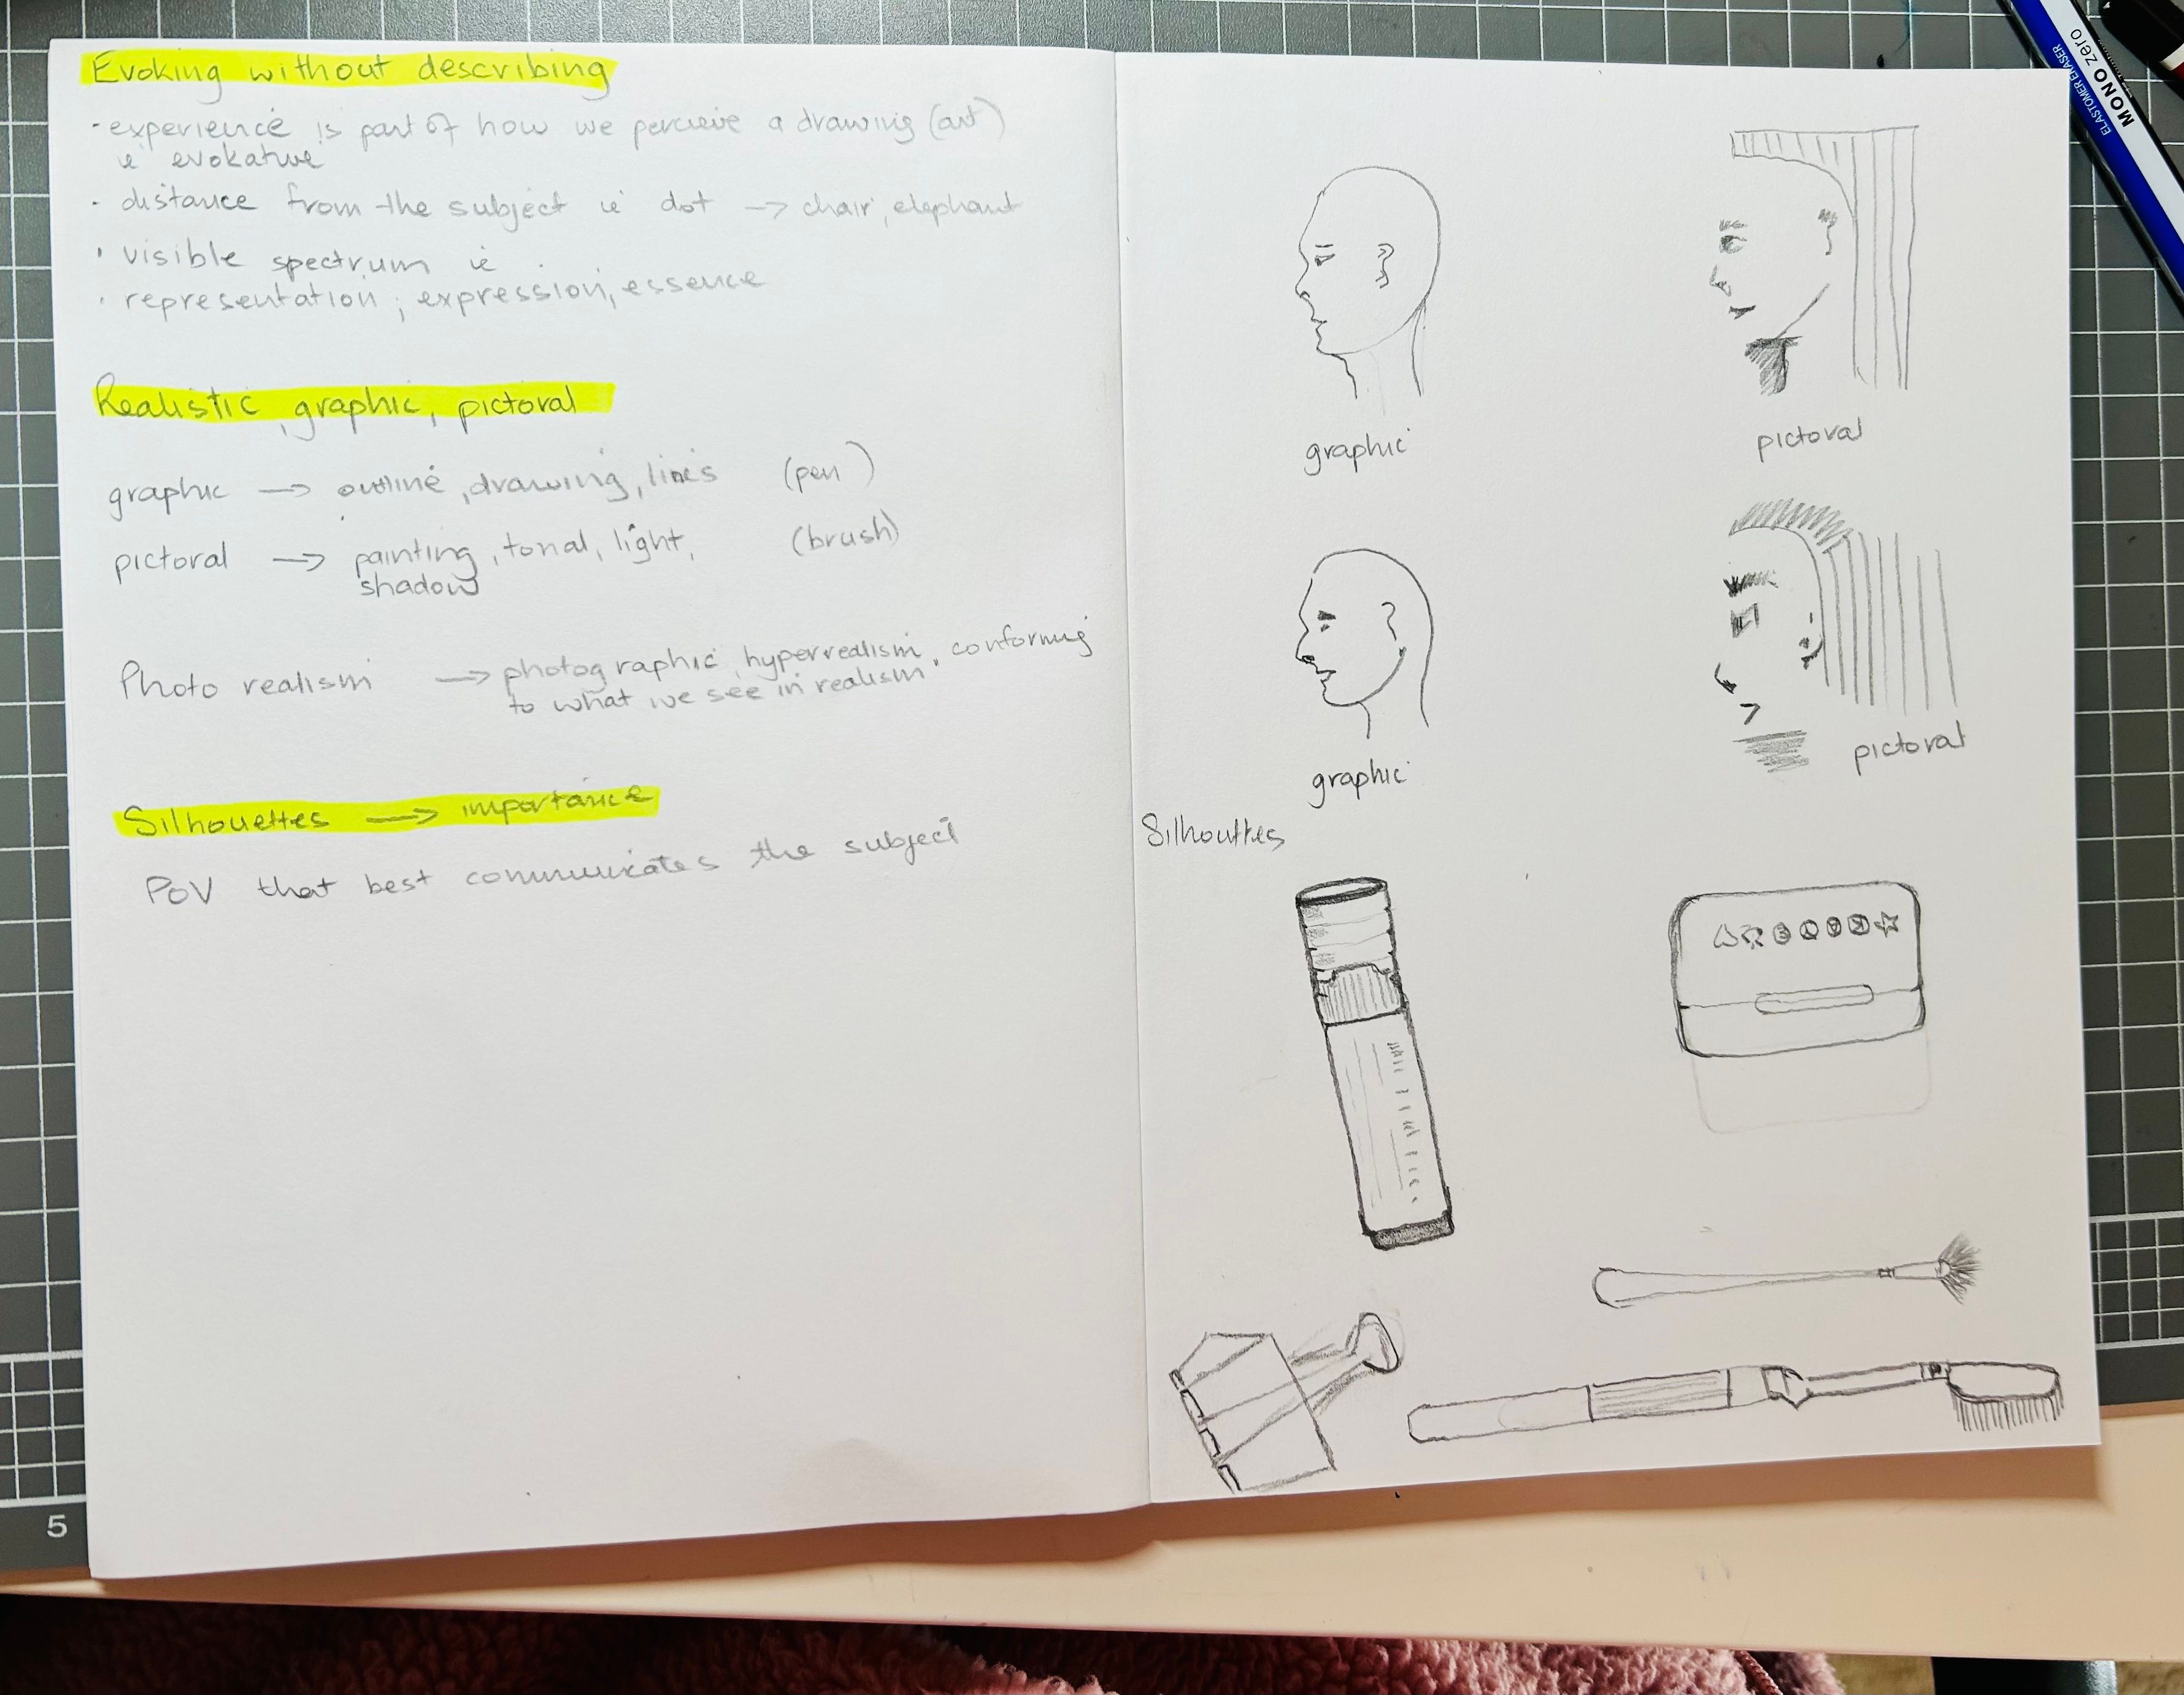 Evoking without describing
- experience is part of how we percieve a drawing (art)
ie evokative
· distance from the subject ie dot -> chair, elephant
· visible spectrum ie
· representation; expression, essence
Realistic, graphic, pictoral
graphic -> outline, drawing, lines (pen)
pictoral -> painting, tonal, light, (brush)
shadow
Photo realism -> photographic, hyperrealism, conforming
to what we see in realism
Silhouettes -> importance
POV that best communicates the subject
5
graphic
pictoral
graphic
pictoral
Silhouttes
MONO zero
ELASTOMER ERASER